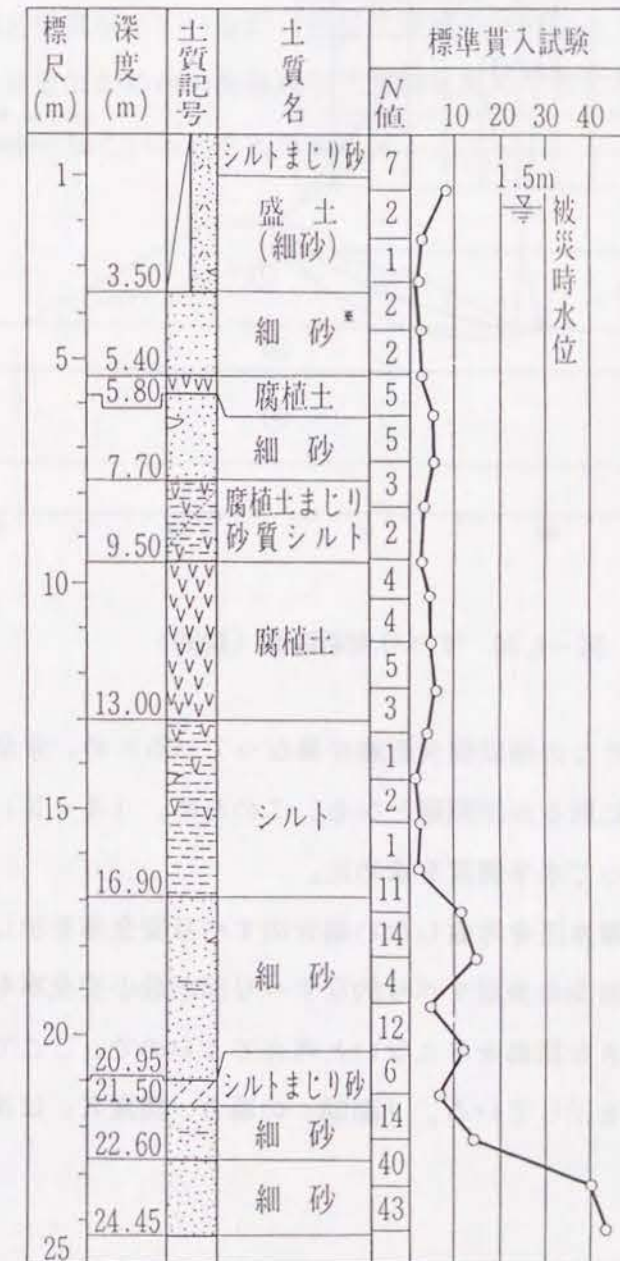 標尺(m)
深度(m)
土質記号
土質名
標準貫入試験
N値
10 20 30 40
1
5
10
15
20
25
3.50
5.40
5.80
7.70
9.50
13.00
16.90
20.95
21.50
22.60
24.45
シルトまじり砂
盛土
(細砂)
細砂
腐植土
細砂
腐植土まじり
砂質シルト
腐植土
シルト
細砂
シルトまじり砂
細砂
細砂
7
2
1
2
2
5
5
3
2
4
4
5
3
2
1
11
14
4
12
6
14
40
43
1.5m
被災時水位